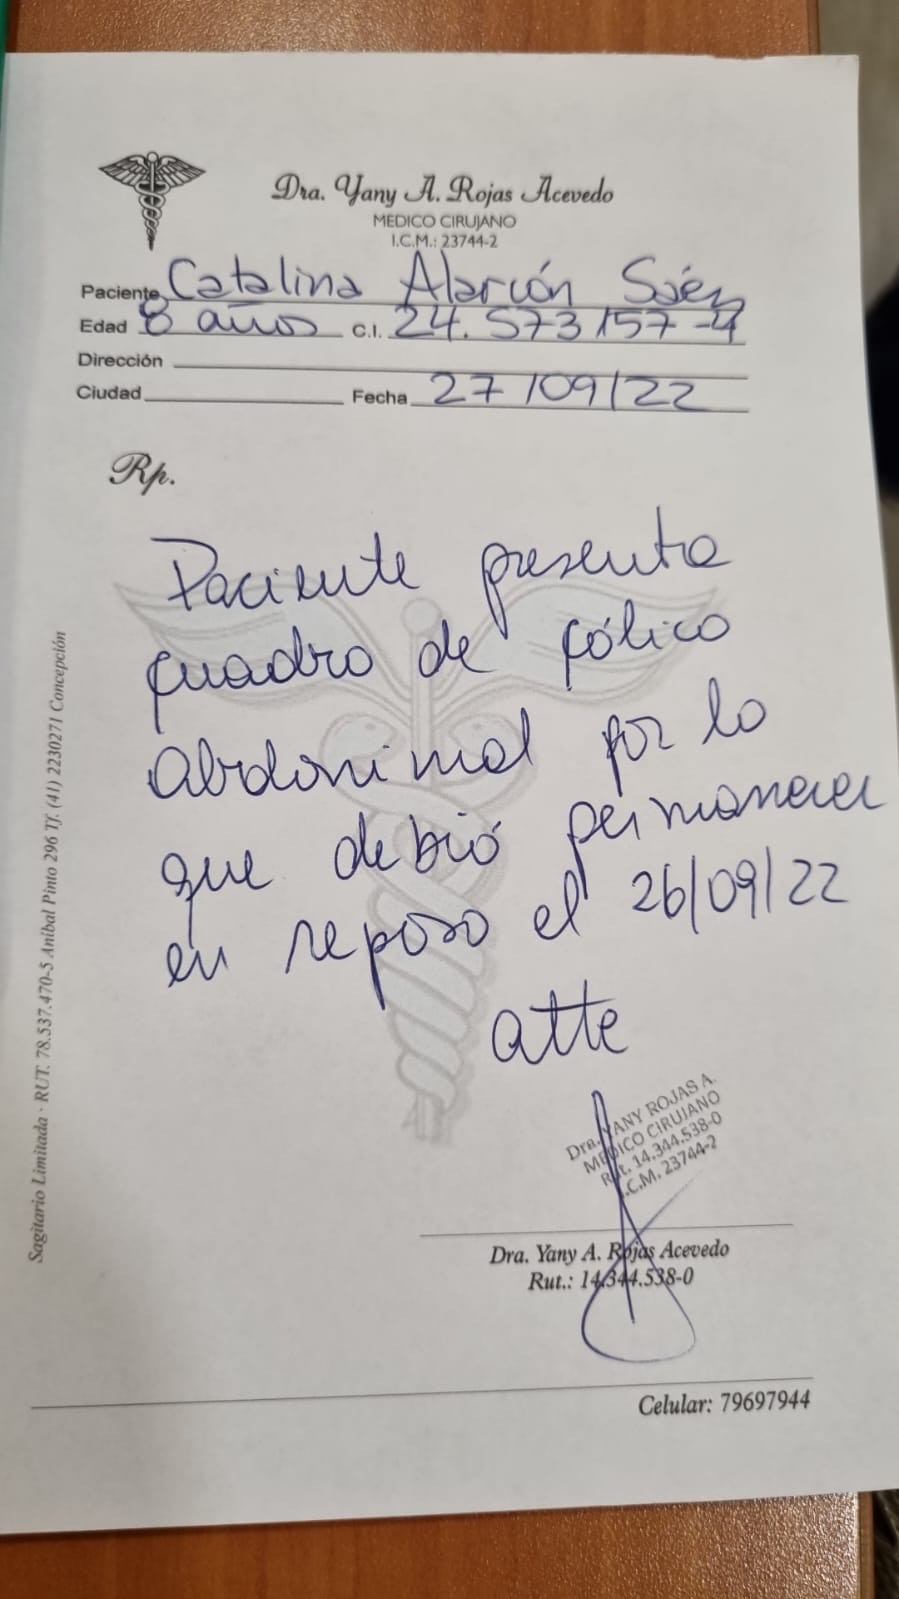 Dra. Yany A. Rojas Acevedo
MEDICO CIRUJANO
I.C.M.: 23744-2
Paciente Catalina Alarcón Sáez
Edad 8 años C.I. 24.573157-4
Dirección
Ciudad Fecha 27/09/22
Rp.
Paciente presenta
cuadro de cólico
Abdominal por lo
que debió permanecer
en reposo el 26/09/22
atte
Dra. YANY ROJAS A.
MEDICO CIRUJANO
Rut. 14.344.538-0
I.C.M. 23744-2
Dra. Yany A. Rojas Acevedo
Rut.: 14.344.538-0
Celular: 79697944
Sagitario Limitada · RUT. 78.537.470-5 Anibal Pinto 296 Tf. (41) 2230271 Concepción